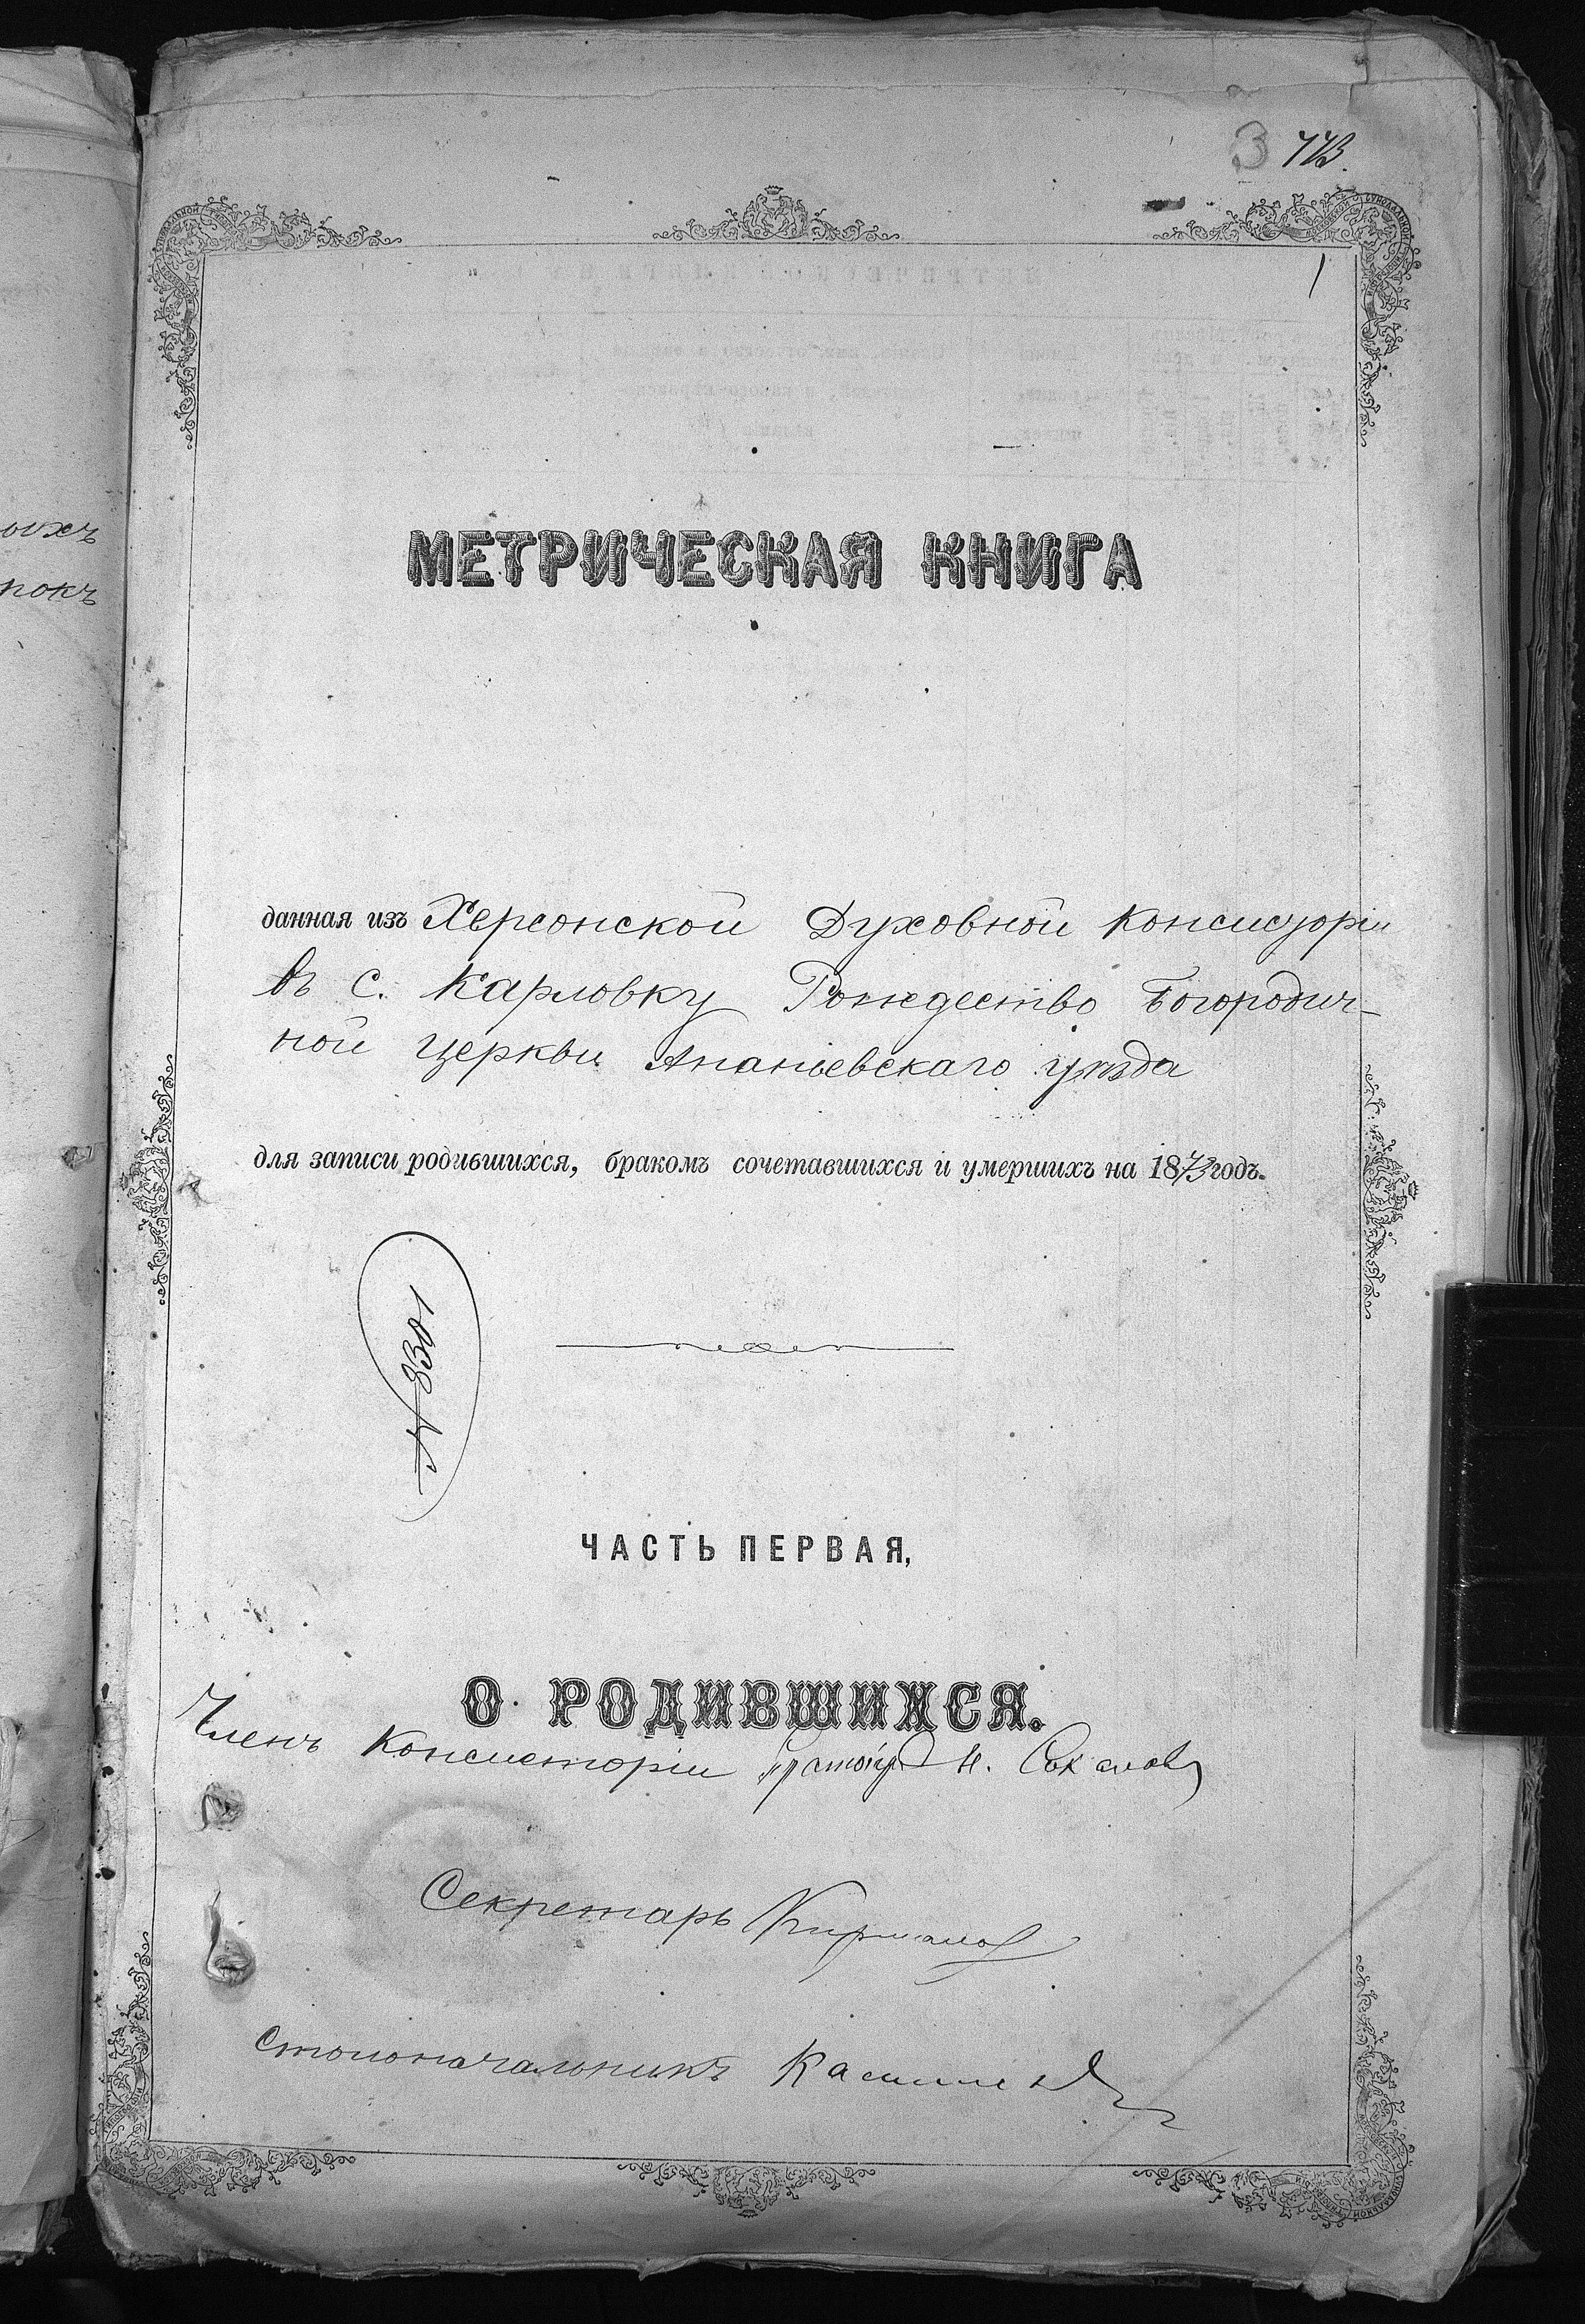 3 773.
1
МЕТРИЧЕСКАЯ КНИГА
данная изъ Херсонской Духовной Консисторіи
въ с. Карловку Рождество Богородич-
ной церкви Ананьевскаго уѣзда
для записи родившихся, бракомъ сочетавшихся и умершихъ на 1873 годъ.
№ 3301
ЧАСТЬ ПЕРВАЯ,
О РОДИВШИХСЯ.
Членъ Консисторіи Н. Соколовъ
Секретарь
Столоначальникъ